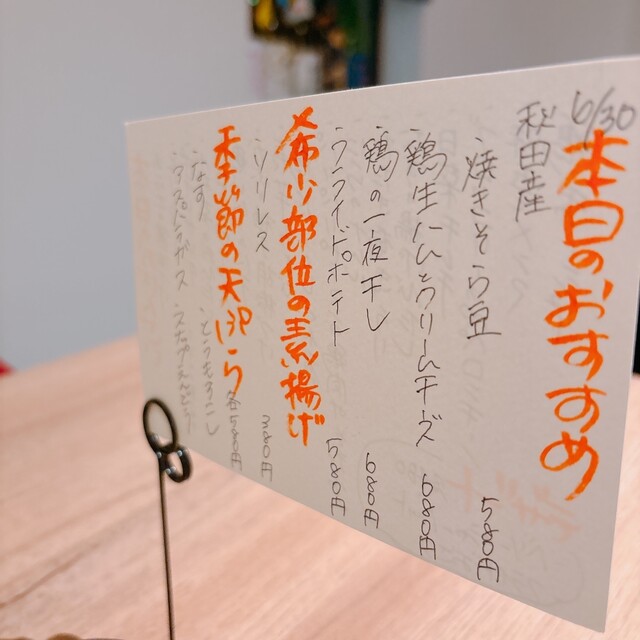 6/30
本日のおすすめ
秋田産
焼きそら豆 580円
鶏生ハムとクリームチーズ 680円
鶏の一夜干し 680円
フライドポテト 580円
希少部位の素揚げ
ソリレス 380円
季節の天ぷら
なす とうもろこし
アスパラガス